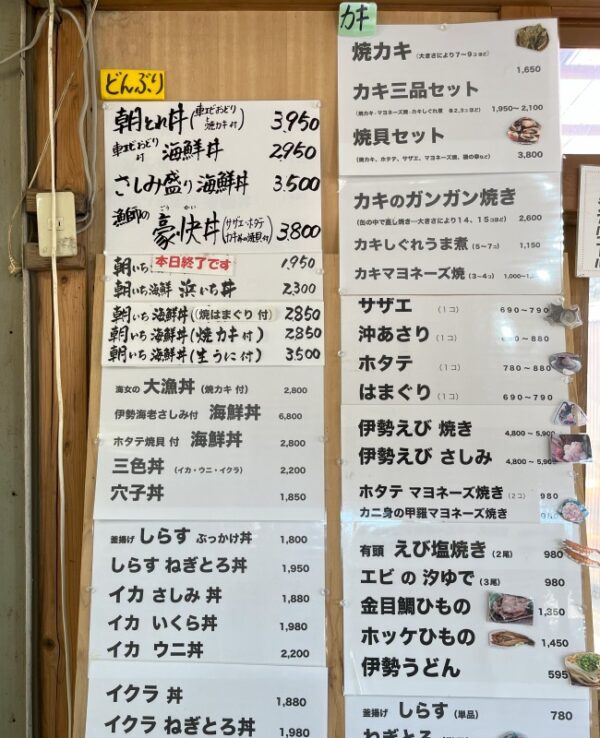 どんぶり
朝とれ丼(車エビおどり 焼カキ付) 3,950
車エビおどり付 海鮮丼 2950
さしみ盛り海鮮丼 3,500
漁師の 豪快丼(サザエ・ホタテ カキ丼の焼貝付) 3,800
ごうかい
朝いち 本日終了です 1,950
朝いち海鮮 浜いち丼 2,300
朝いち海鮮丼(焼はまぐり付) 2850
朝いち海鮮丼(焼カキ付) 2850
朝いち海鮮丼(生うに付) 3,500
海女の 大漁丼(焼カキ付) 2,800
伊勢海老さしみ付 海鮮丼 6,800
ホタテ焼貝 付 海鮮丼 2,800
三色丼 (イカ・ウニ・イクラ) 2,200
穴子丼 1,850
釜揚げ しらす ぶっかけ丼 1,800
しらす ねぎとろ丼 1,950
イカ さしみ 丼 1,880
イカ いくら丼 1,980
イカ ウニ丼 2,200
イクラ 丼 1,880
イクラ ねぎとろ丼 1,980
カキ
焼カキ (大きさにより7〜9コほど) 1,650
カキ三品セット
(焼カキ・マヨネーズ焼・カキしぐれ煮 各2,3コほど) 1,950〜2,100
焼貝セット
(焼カキ、ホタテ、サザエ、マヨネーズ焼、など) 3,800
カキのガンガン焼き
(缶の中で蒸し焼き…大きさにより14、15コほど) 2,600
カキしぐれうま煮 (5〜7コ) 1,150
カキマヨネーズ焼 (3〜4コ) 1,000〜
サザエ (1コ) 690〜790
沖あさり (1コ) 〜880
ホタテ (1コ) 780〜880
はまぐり (1コ) 690〜790
伊勢えび 焼き 4,800〜5,900
伊勢えび さしみ 4,800〜5,900
ホタテ マヨネーズ焼き (2コ) 980
カニ身の甲羅マヨネーズ焼き 980
有頭 えび塩焼き (2尾) 980
エビ の 汐ゆで (3尾) 980
金目鯛ひもの 1,350
ホッケひもの 1,450
伊勢うどん 595
釜揚げ しらす (単品) 780